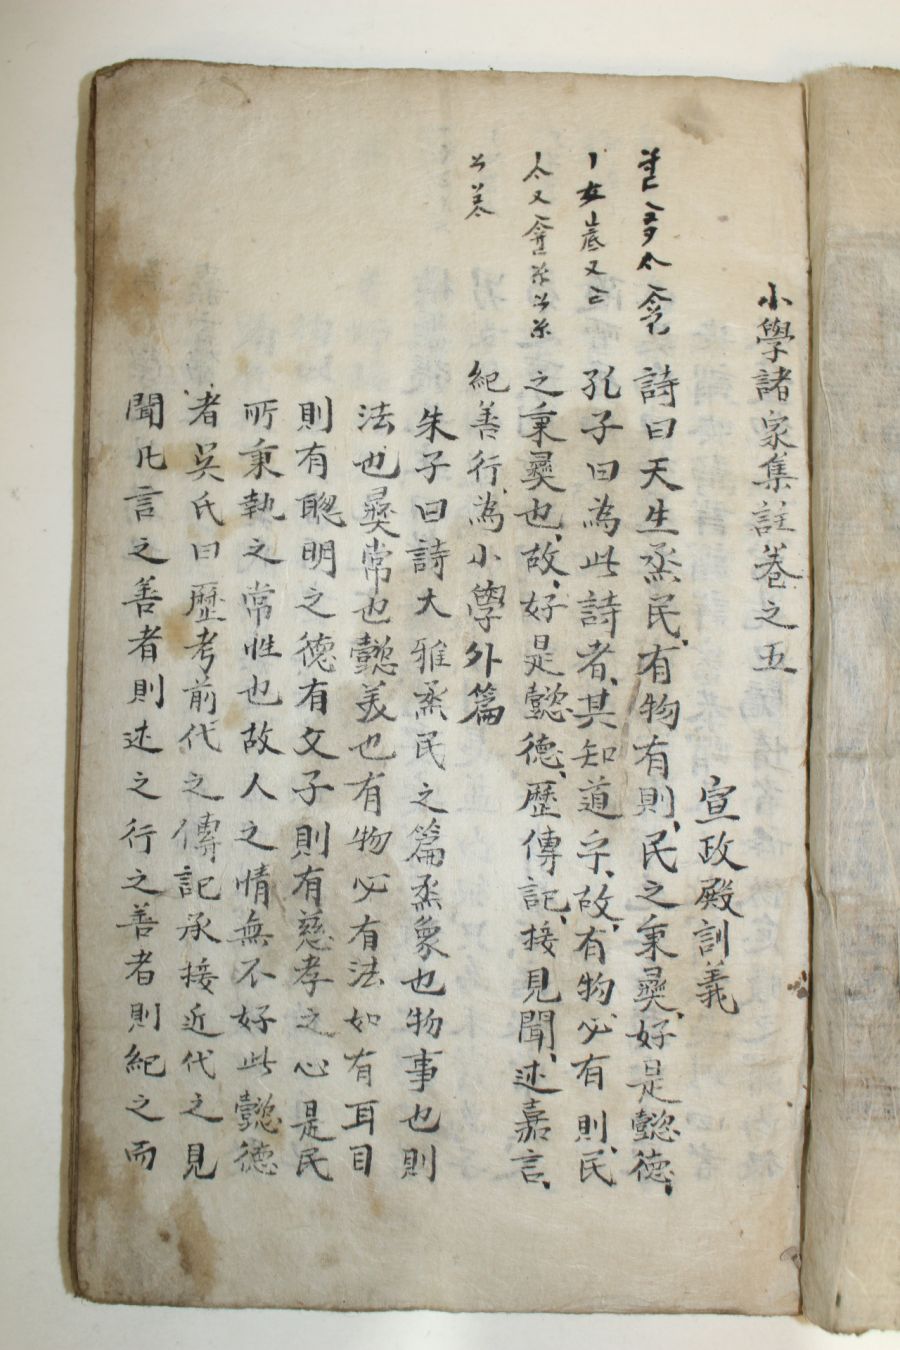 小學諸家集註卷之五
宣政殿訓義
詩曰天生烝民有物有則民之秉彛好是懿德
孔子曰為此詩者其知道乎故有物必有則民
之秉彛也故好是懿德歷傳記接見聞述嘉言
紀善行為小學外篇
朱子曰詩大雅烝民之篇烝象也物事也則
法也彛常也懿美也有物必有法如有耳目
則有聰明之德有父子則有慈孝之心是民
所秉執之常性也故人之情無不好此懿德
者吳氏曰歷考前代之傳記承接近代之見
聞凡言之善者則述之行之善者則紀之而